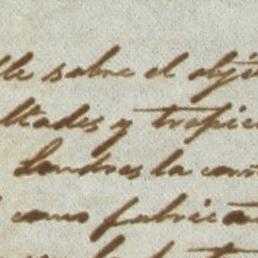 lle sobre el obje
ultades y tropie
Londres la con
como fabrica